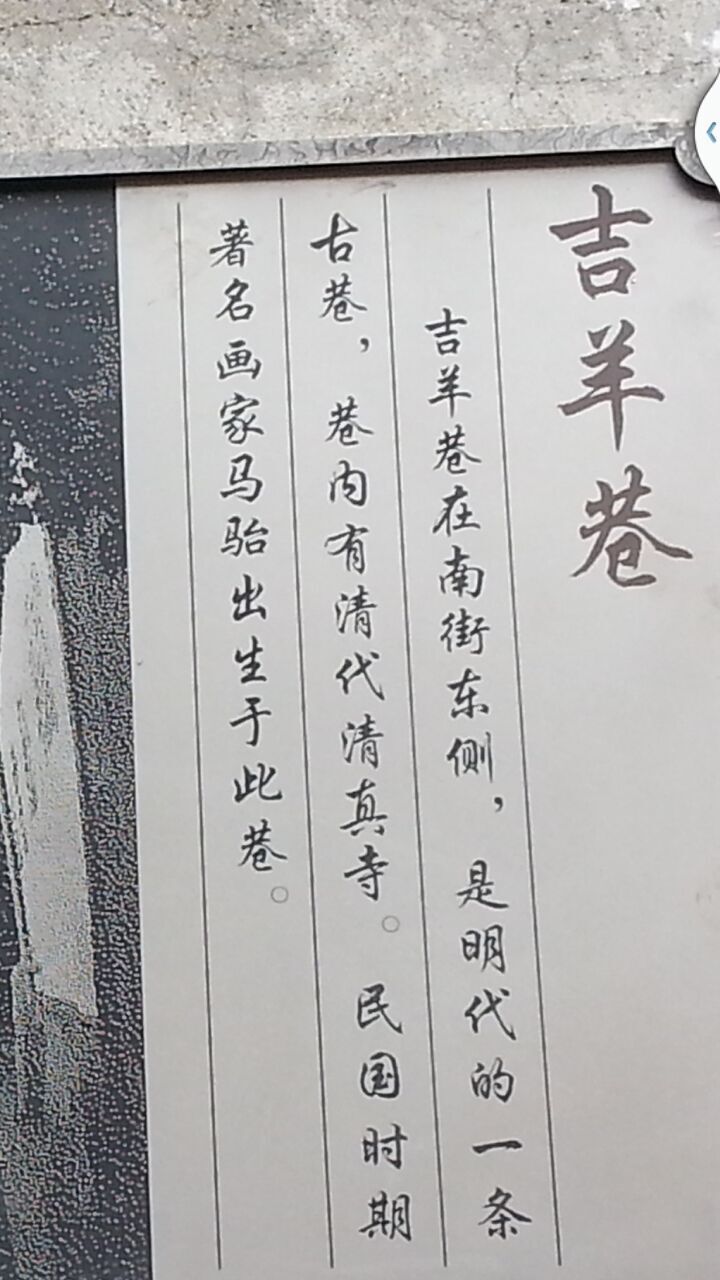 吉羊巷
吉羊巷在南街东侧，是明代的一条
古巷，巷内有清代清真寺。民国时期
著名画家马骀出生于此巷。